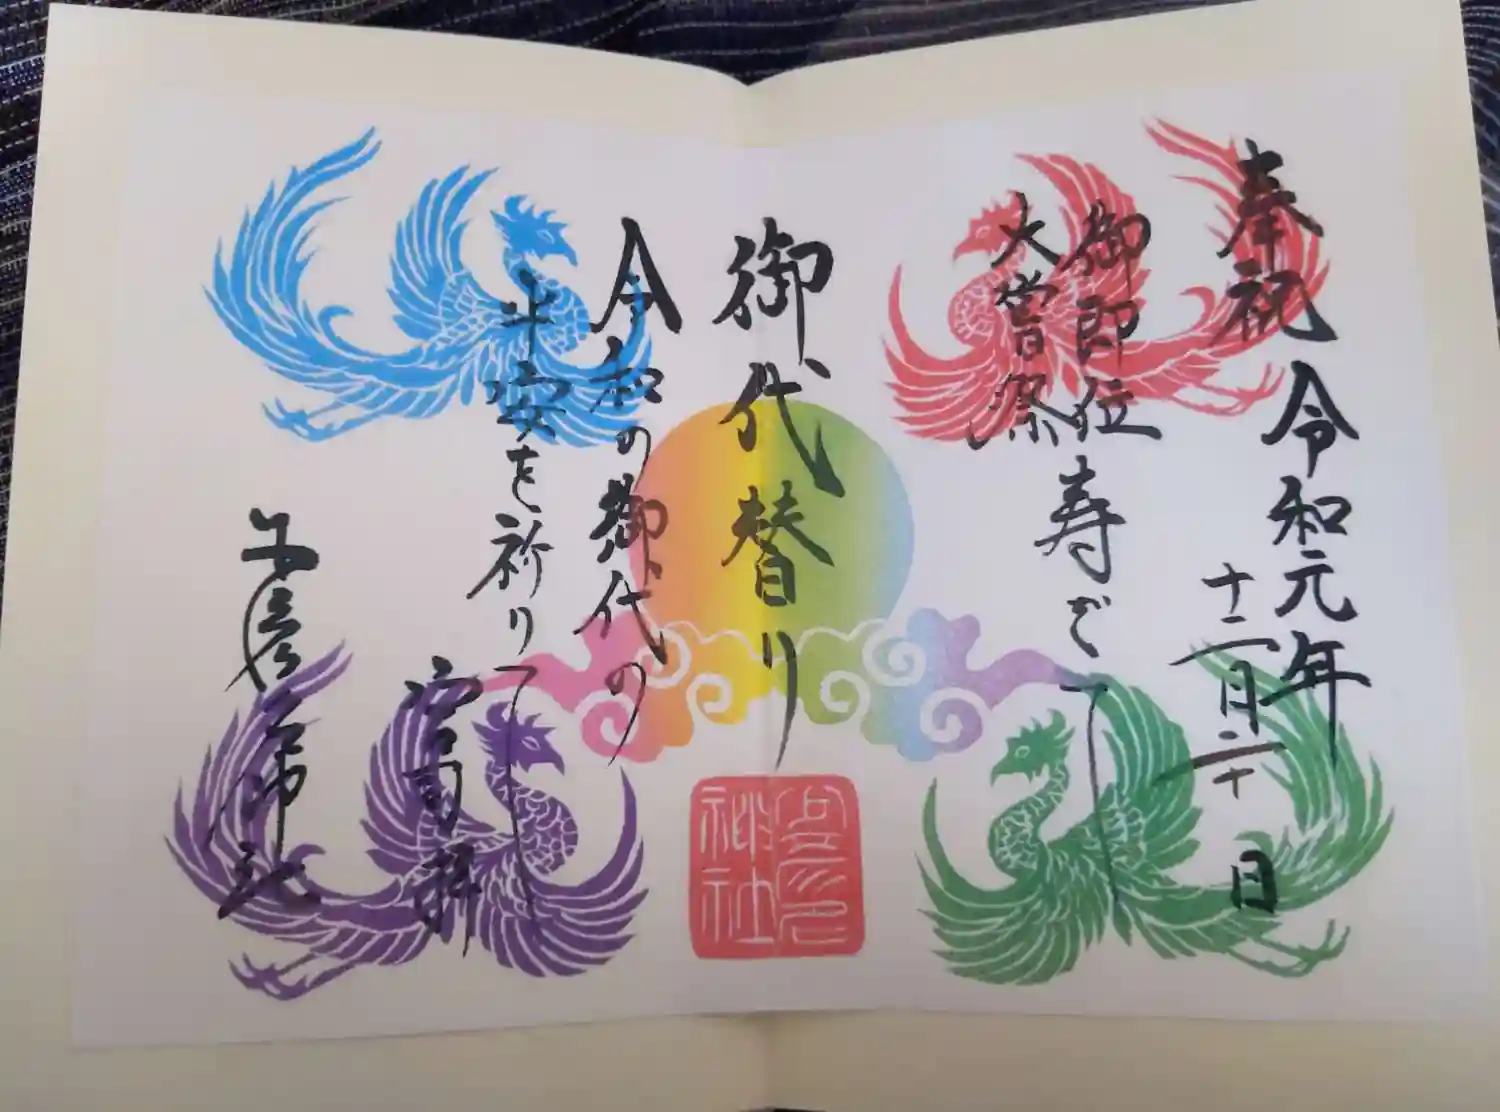 奉祝 令和元年
十二月二十日
御即位
大嘗祭
寿ぎて
御代替り
令和の御代の
平安を祈りて
宮司 拝
神社